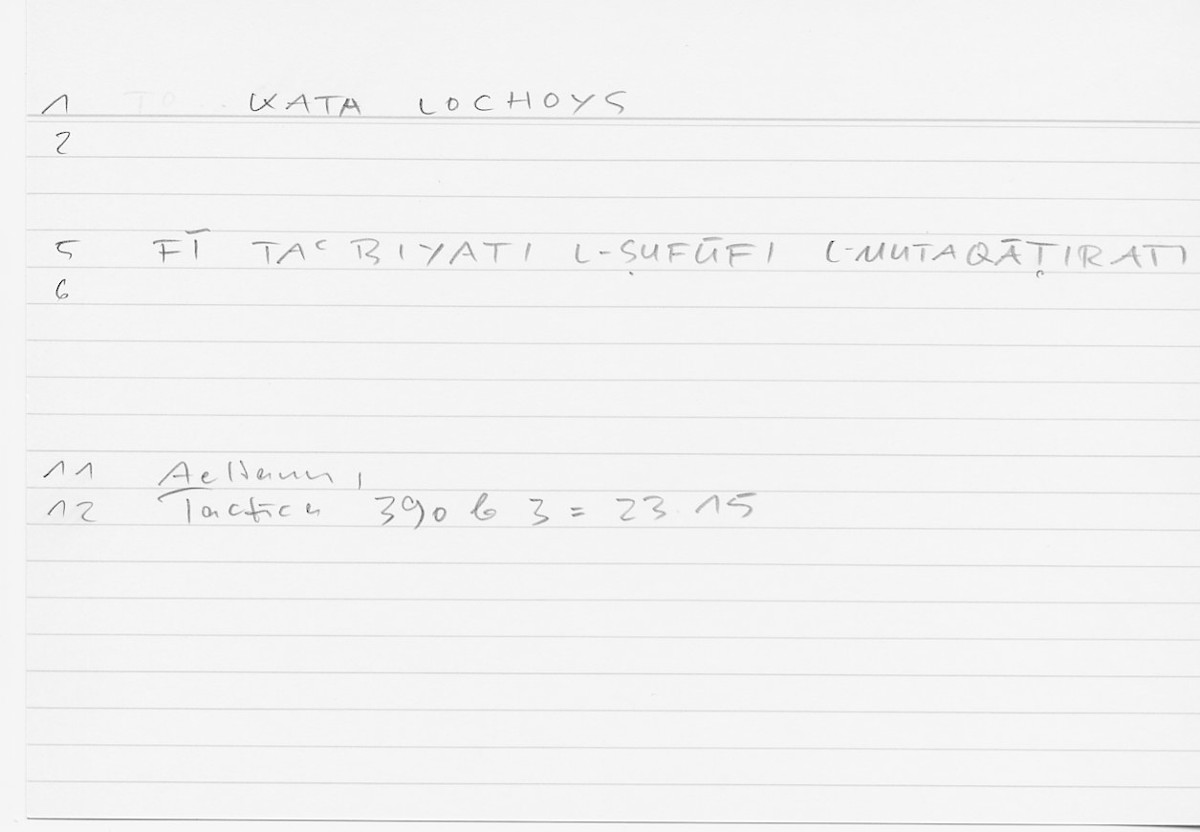 1 KATA LOCHOYS
2
5 FĪ TAʿBIYATI L-ṢUFŪFI L-MUTAQĀṬIRATI
6
11 Aelianus,
12 Tactica 390 b 3 = 23.15